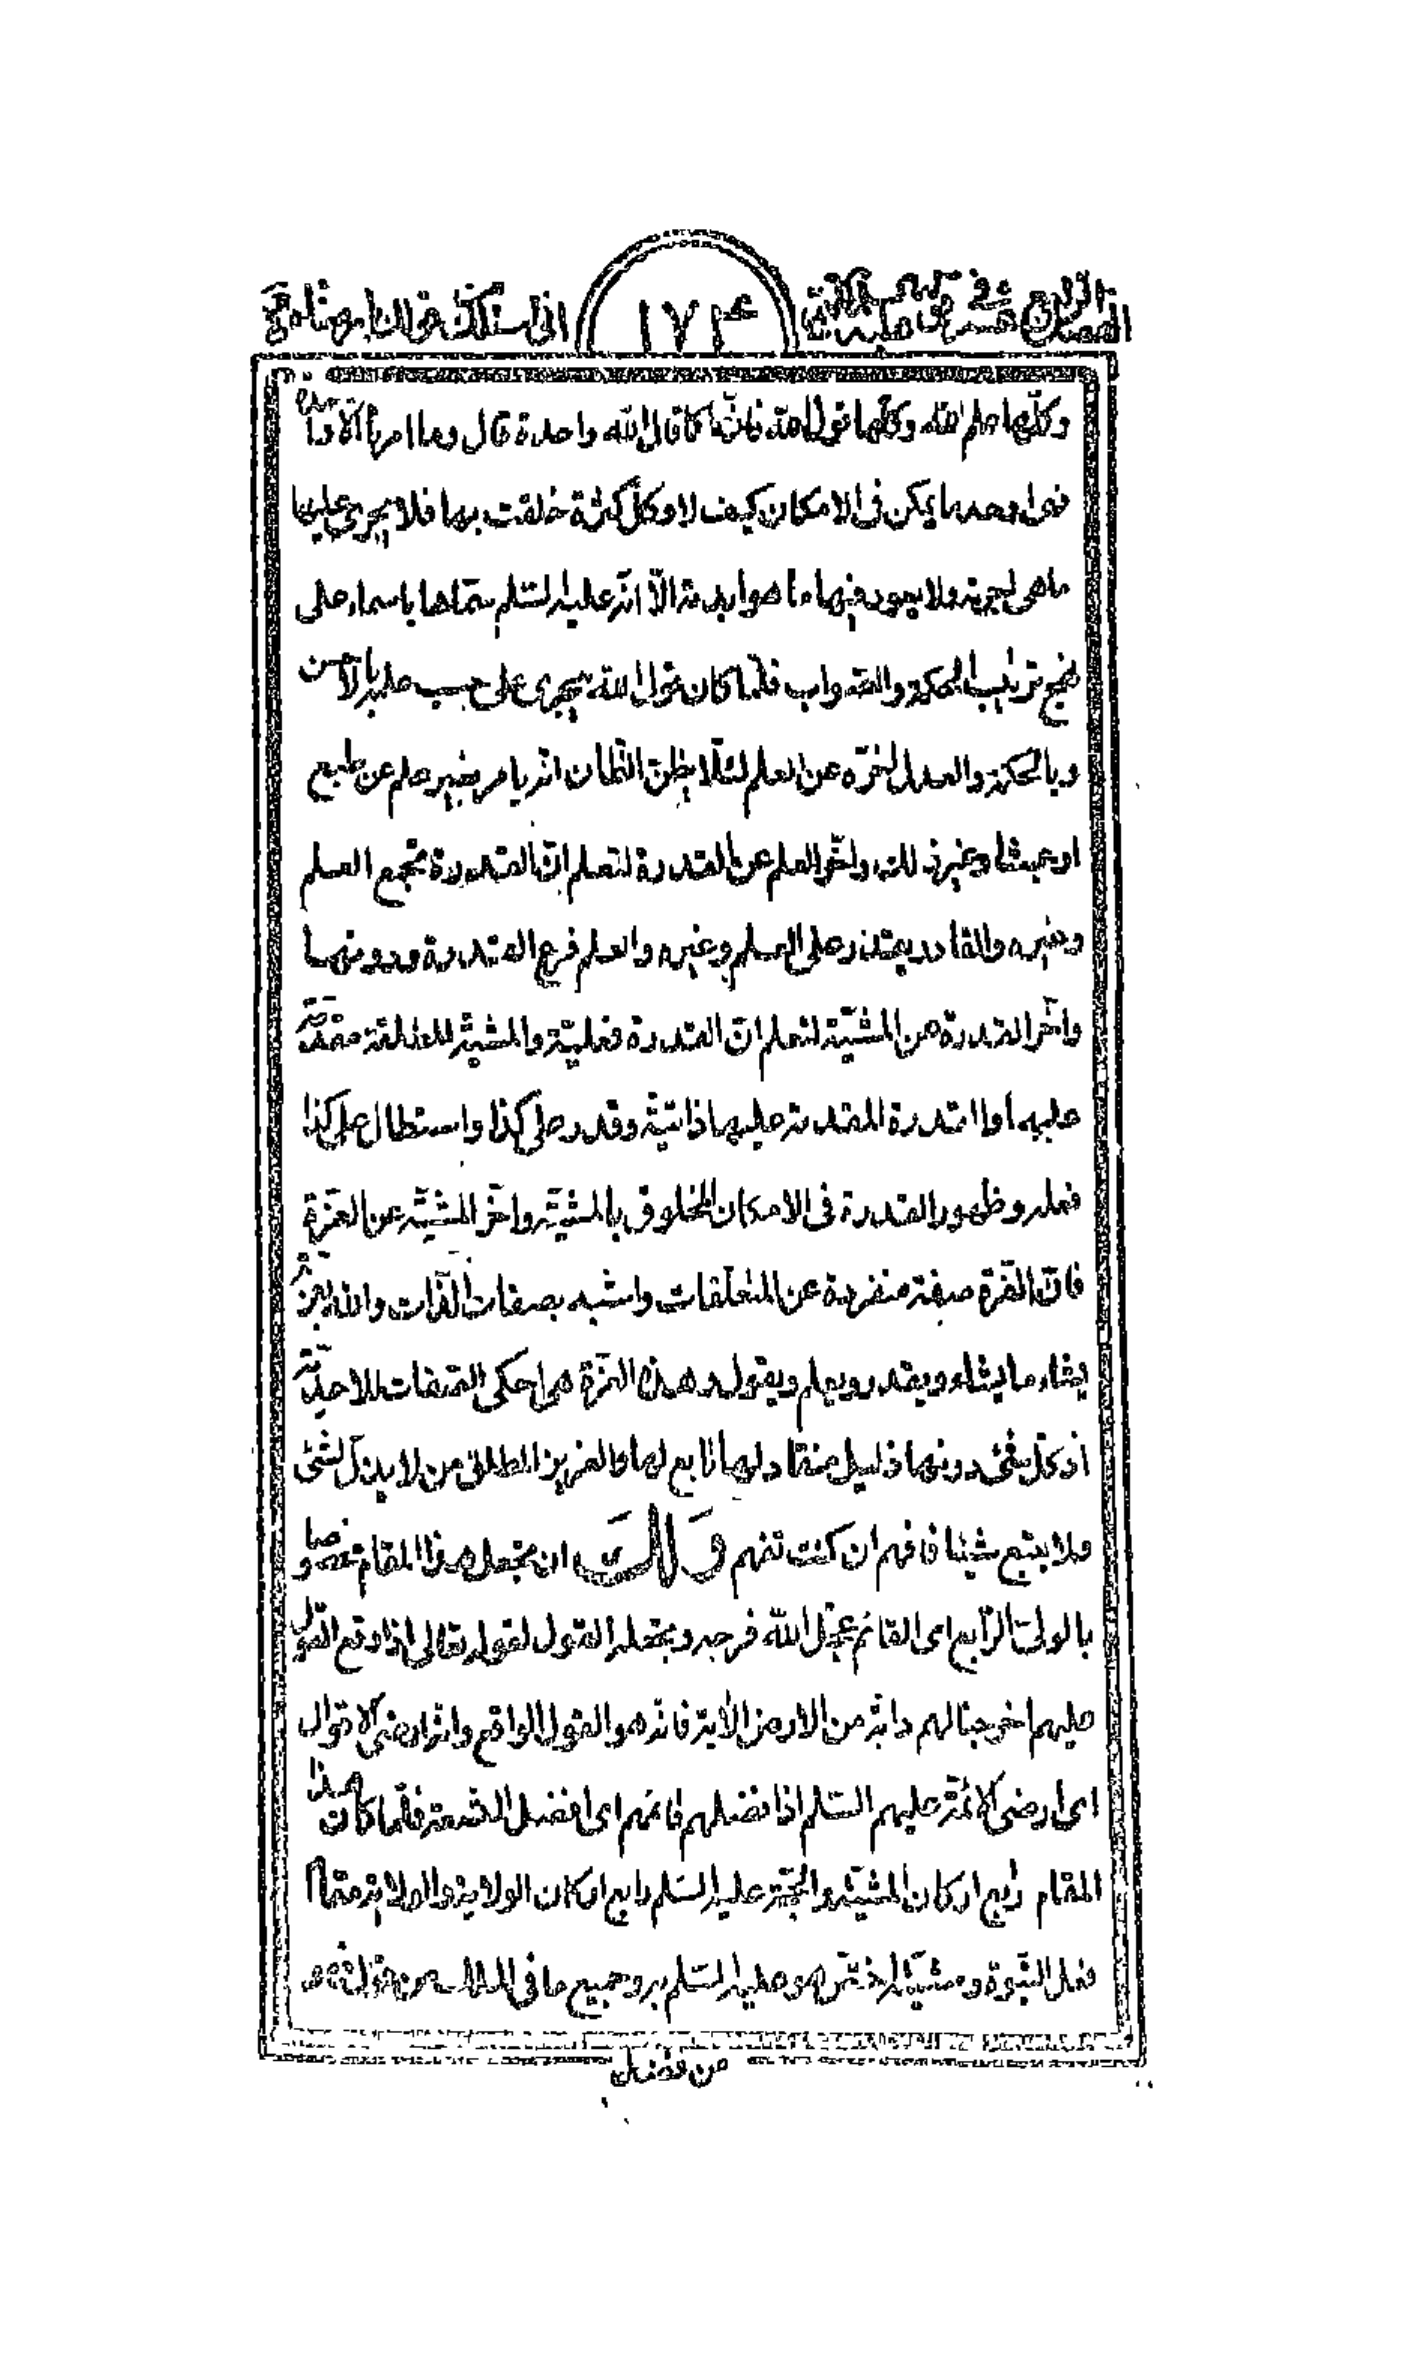 انى اسئلك من قولك بارضاه
١٧١
وكلها علم الله وكلها قول الله فانها كما قال الله واحدة قال وما امرنا الا واحدة
فهى اوحد ما يمكن فى الامكان كيف لا وكل كثرة خلقت بها فلا يجرى عليها
ماهى اجرته ولا يعود فيها ما هو ابدئه الا انه عليه السلم سماها باسماء على
نهج ترتيب الحكمة والصواب فلما كان قول الله يجرى على حسب علمه بالاحسن
وبالحكمة والعدل اخره عن العلم لئلا يظن الظان انه يامر بغير علم عن طبع
او عبثا وغير ذلك واخر العلم عن القدرة لتعلم ان القدرة تجمع العلم
وغيره والقادر يقتدر على العلم وغيره والعلم فرع القدرة ودونها
واخر القدرة عن المشية لتعلم ان القدرة فعلية والمشية المطلقة مقدمة
عليها والقدرة المقدمة عليها ذاتية وقدر على كذا واستطال على كذا
فعله وظهور القدرة فى الامكان المخلوق بالمشية واخر المشية عن العزة
فان العزة صفة منفردة عن المتعلقات واشبه بصفات الذات والله بعزته
يشاء ما يشاء ويقدر ويعلم ويقول وهذه العزة هى احكى الصفات للاحدية
اذ كل شئ دونها ذليل منقاد لها تابع لها والعزيز المطلق من لا يذل لشئ
ولا يتبع شيئا فافهم ان كنت تفهم وَلكَ ان تجعل هذا المقام مخصوصا
بالولى الرابع اى القائم عجل الله فرجه وتجعله القول لقوله تعالى اذا وقع القول
عليهم اخرجنا لهم دابة من الارض الاية فانه هو القول الواقع وانه ارضى الاقوال
اى ارضى الائمة عليهم السلم اذا فضلهم قائمهم اى افضل التسعة فلما كان هذا
المقام رابع اركان المشية والحجة عليه السلم رابع اركان الولاية والولاية مقام
فعل النبوة ومشية الله اختص هو عليه السلم به وجميع ما فى الملك من
من فضل